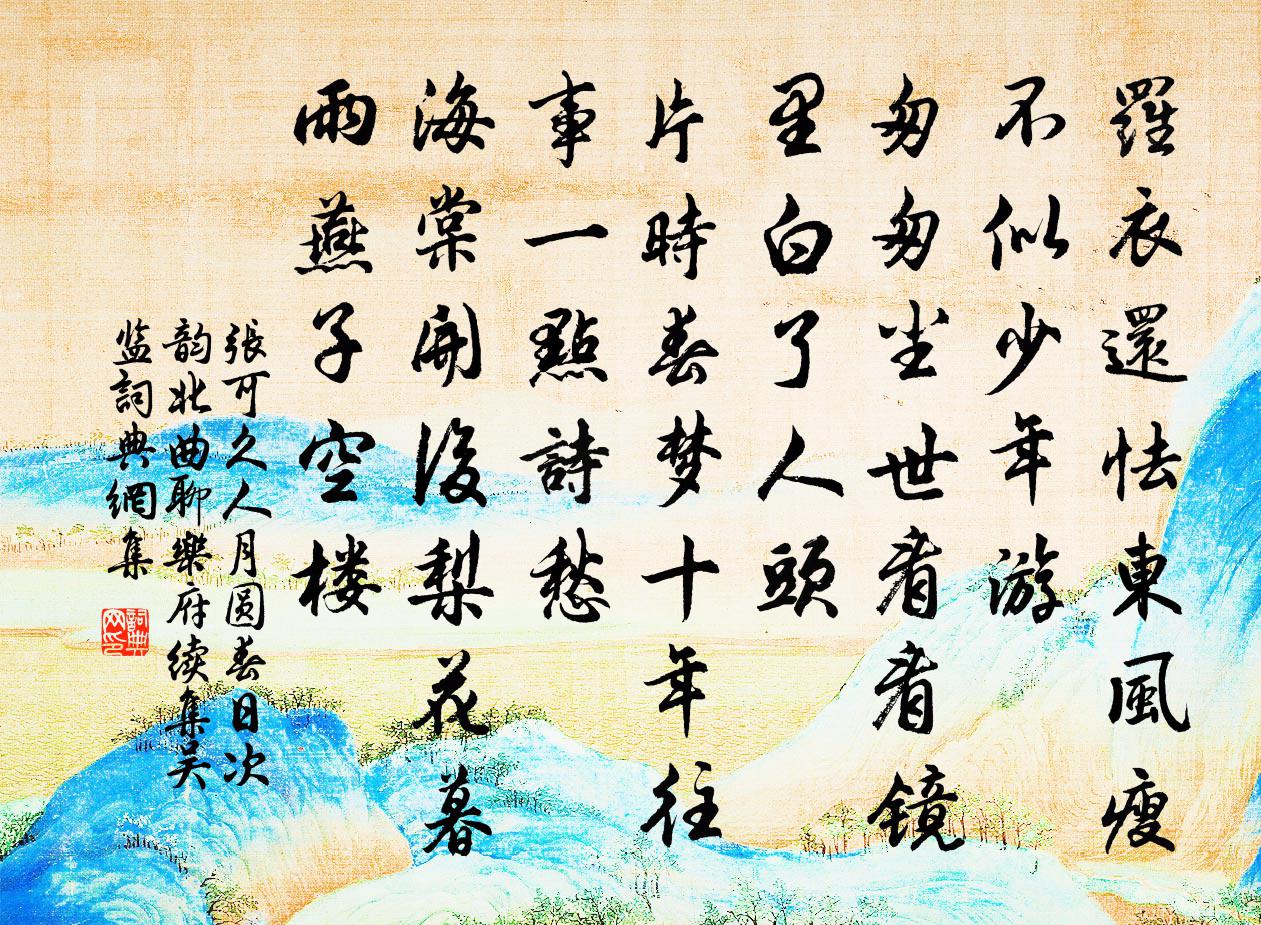 羅衣還怯東風瘦
不似少年游
匆匆尘世看看镜
里白了人頭
片時春梦十年往
事一點詩愁
海棠開後梨花暮
雨燕子空楼
張可久人月圆春日次
韵北曲聊樂府续集吴
监詞典網集
詞典网印